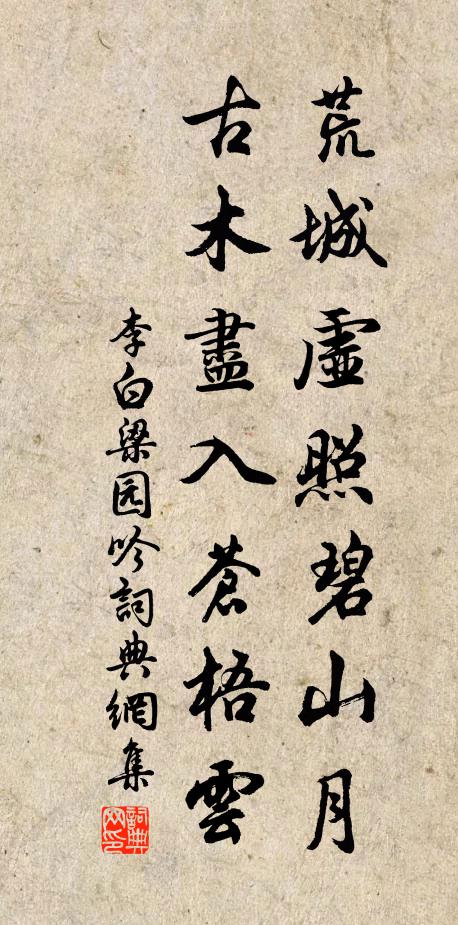 荒城虛照碧山月
古木盡入蒼梧雲
李白梁园吟詞典網集
詞典網印